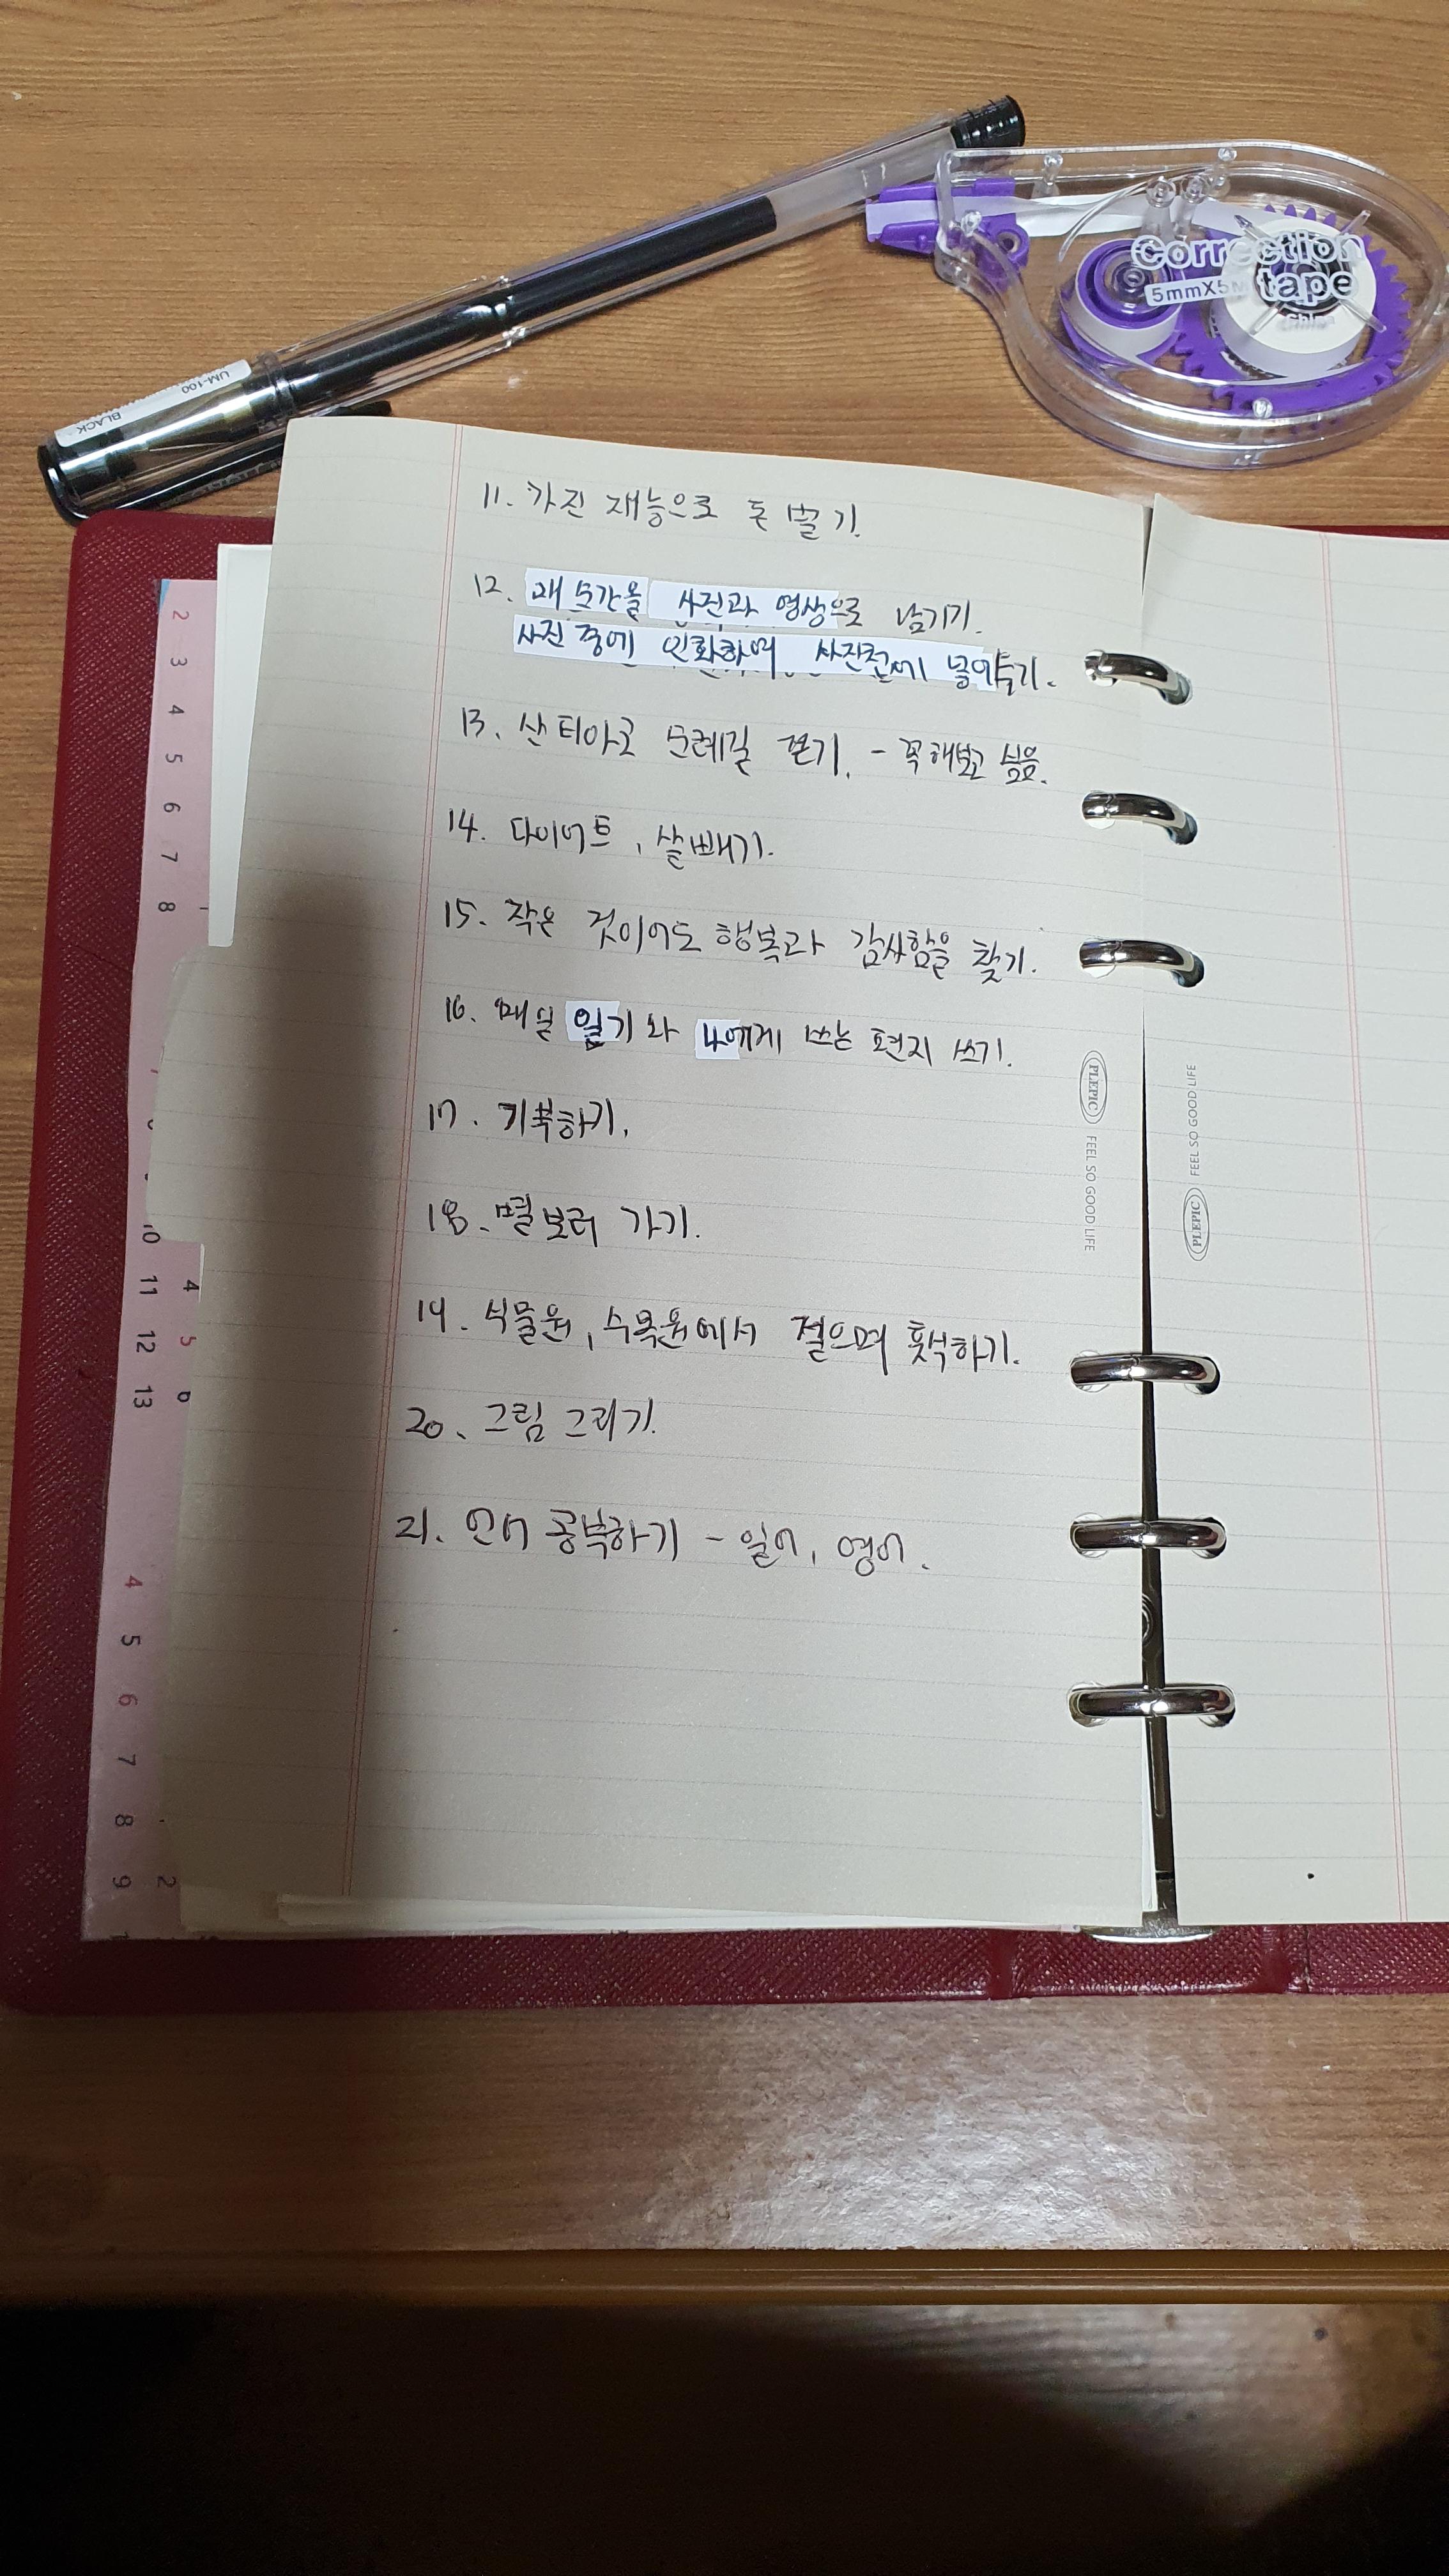 Correction
tape
5mmX5M
UM-100
BLACK
11. 가진 재능으로 돈 벌기.
12. 매 순간을 사진과 영상으로 남기기.
사진 중에 인화하여 사진첩에 넣어두기.
13. 산티아고 순례길 걷기. - 꼭 해보고 싶음.
14. 다이어트, 살빼기.
15. 작은 것이어도 행복과 감사함을 찾기.
16. 매일 일기와 나에게 쓰는 편지 쓰기.
17. 기부하기.
18. 별 보러 가기.
19. 식물원, 수목원에서 걸으며 휴식하기.
20. 그림 그리기.
21. 언어 공부하기 - 일어, 영어.
PLEPIC FEEL SO GOOD LIFE
PLEPIC FEEL SO GOOD LIFE
2
3
4
5
6
7
8
10
11 4
12 5
13 6
4
5
6
7
8
9 2